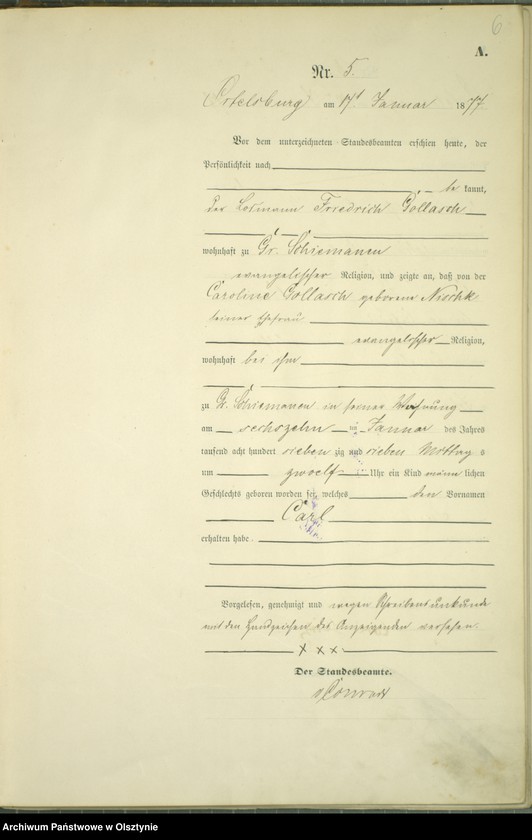 6
A.
Nr. 5.
Ortelsburg am 17t Januar 1877
Vor dem unterzeichneten Standesbeamten erschien heute, der
Persönlichkeit nach
be kannt,
der Losmann Friedrich Gollasch
wohnhaft zu Gr. Schiemanen
evangelischer Religion, und zeigte an, daß von der
Caroline Gollasch geborene Nischk
seiner Ehefrau
evangelischer Religion,
wohnhaft bei ihm
zu Gr. Schiemanen in seiner Wohnung
am sechszehn ten Januar des Jahres
tausend acht hundert sieben zig und sieben Mittag s
um zwoelf Uhr ein Kind männ lichen
Geschlechts geboren worden sei, welches den Vornamen
Carl
erhalten habe.
Vorgelesen, genehmigt und wegen Schreibensunkunde
mit den Handzeichen des Anzeigenden versehen.
x x x
Der Standesbeamte.
Conrad
Archiwum Państwowe w Olsztynie